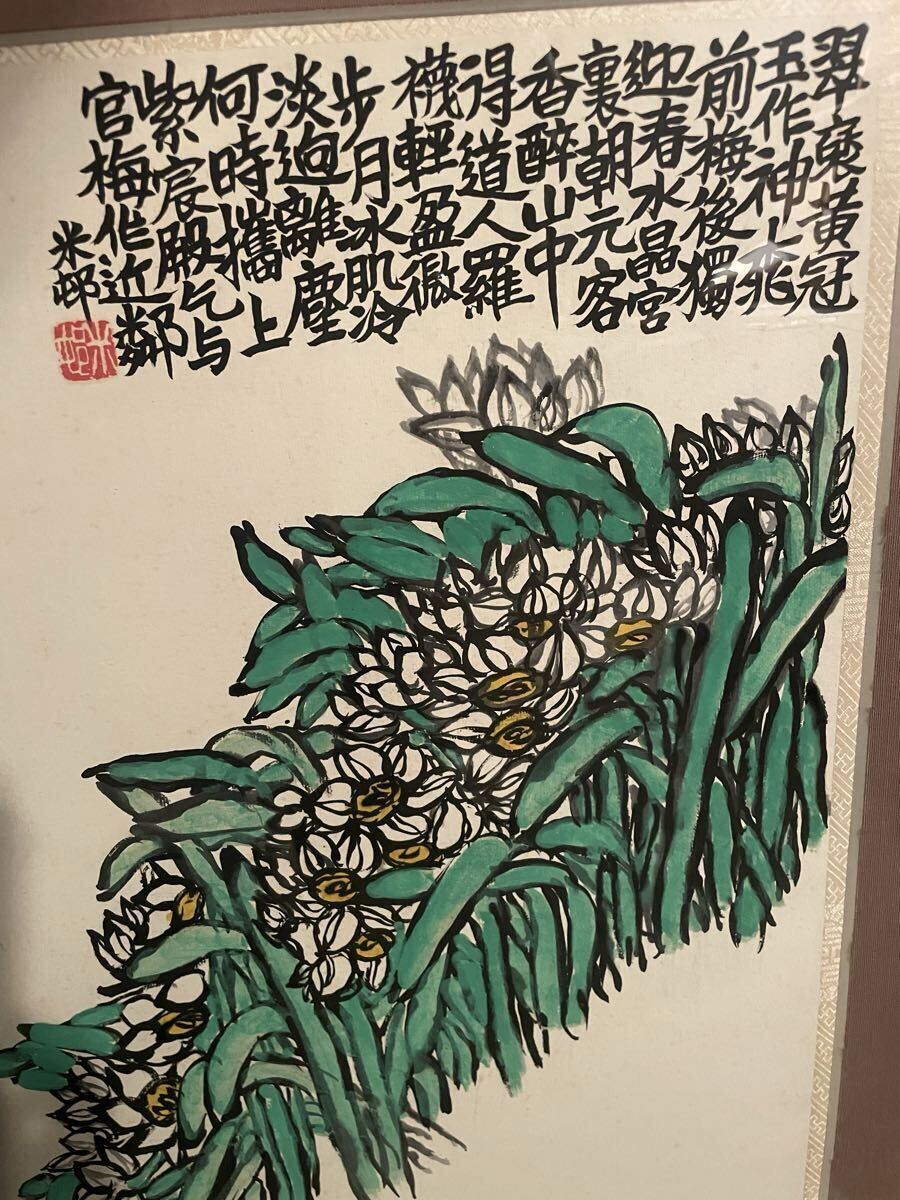 翠褎黃冠
玉作神桃
前梅後獨
迎春水晶宮
裏朝元客
香醉山中
得道人羅
襪輕盈微
步月冰肌冷
淡逈離塵
何時攜上
紫宸殿乞与
官梅作近鄰
米邨